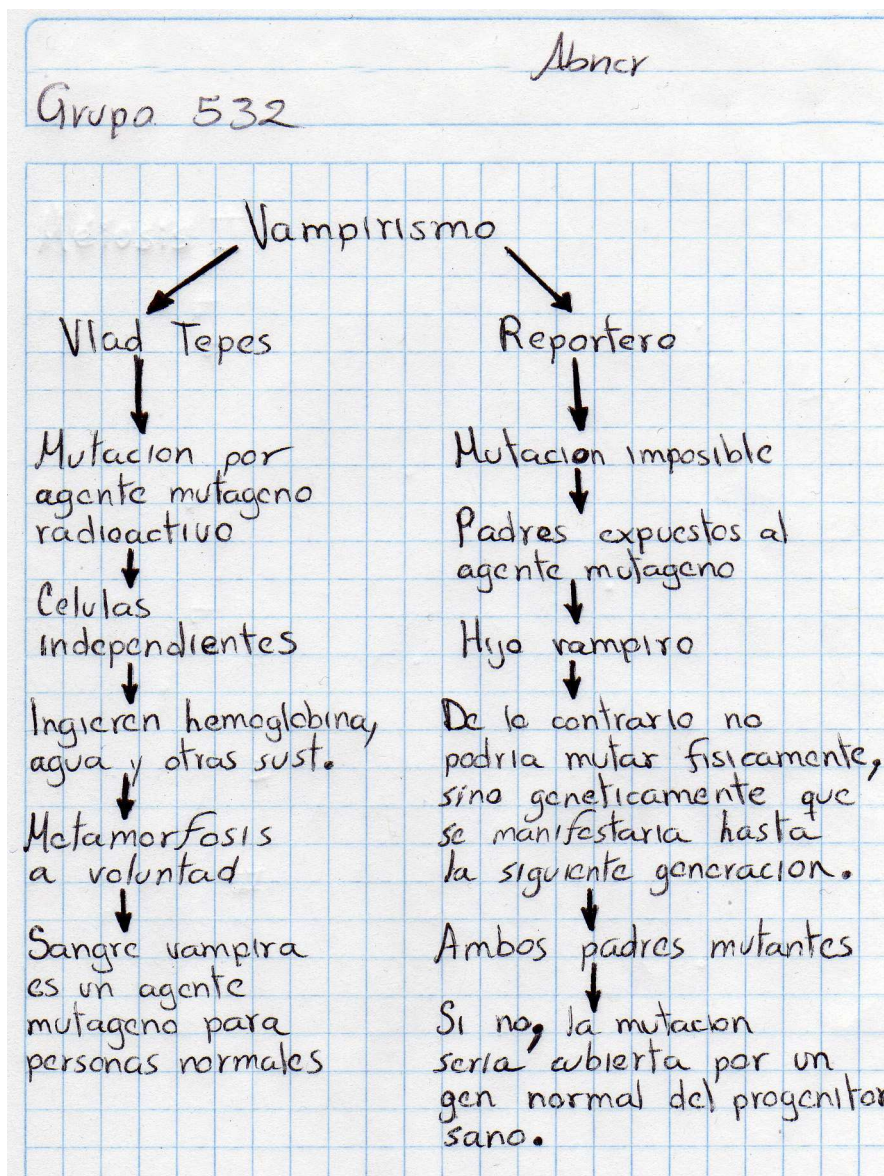 Abner
Grupo 532
Vampirismo
Vlad Tepes
Mutacion por
agente mutageno
radioactivo
Celulas
independientes
Ingieren hemoglobina,
agua y otras sust.
Metamorfosis
a voluntad
Sangre vampira
es un agente
mutageno para
personas normales
Reportero
Mutacion imposible
Padres expuestos al
agente mutageno
Hijo vampiro
De lo contrario no
podria mutar fisicamente,
sino geneticamente que
se manifestaria hasta
la siguiente generacion.
Ambos padres mutantes
Si no, la mutacion
seria cubierta por un
gen normal del progenitor
sano.